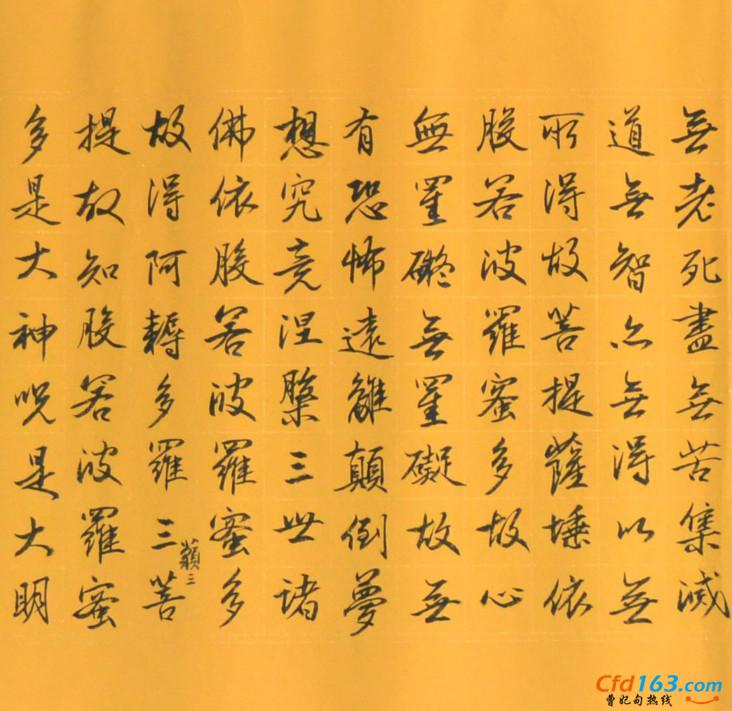 無老死盡無苦集滅
道無智亦無得以無
所得故菩提薩埵依
般若波羅蜜多故心
無罣礙無罣礙故無
有恐怖遠離顛倒夢
想究竟涅槃三世諸
佛依般若波羅蜜多
故得阿耨多羅三菩
藐三
提故知般若波羅蜜
多是大神咒是大明
Cfd163.com
曹妃甸热线